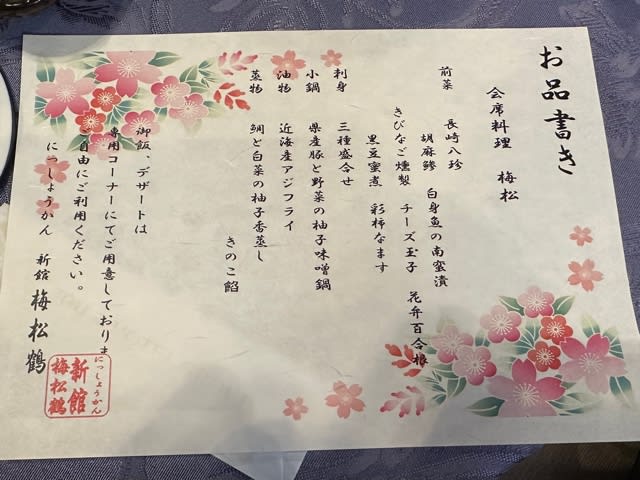 お品書き
会席料理　梅松
前菜　長崎八珍
胡麻鯵　白身魚の南蛮漬
きびなご燻製　チーズ玉子　花弁百合根
黒豆蜜煮　彩柿なます
刺身　三種盛合せ
小鍋　県産豚と野菜の柚子味噌鍋
油物　近海産アジフライ
蒸物　鯛と白菜の柚子香蒸し
きのこ餡
御飯、デザートは
専用コーナーにてご用意しておりま
自由にご利用ください。
にっしょうかん　新館　梅松鶴
にっしょうかん
新館
梅松鶴